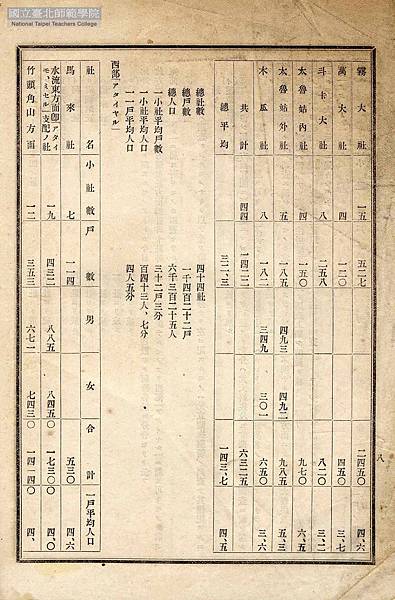 國立臺北師範學院
National Taipei Teachers College
八
霧大社 一五 五二七 二四五〇 四、六
萬大社 四 一二〇 四五〇 三、七
斗卡大社 八 二五八 八二〇 三、二
太魯姑內社 四 一五〇 九七〇 六、五
太魯姑外社 五 一八五 四九三 四九二 九八五 五、三
木瓜社 八 一八二 三四九 三〇一 六五〇 三、六
共計 四四 一四二二 六三二五
總平均 三二、三 一四三、七 四、五
總社數 四十四社
總戶數 一千四百二十二戶
總人口 六千三百二十五人
一小社平均戶數 三十二戶三分
一小社平均人口 百四十三人、七分
一戶平均人口 四人五分
西部「アタイヤル」
社名 小社數 戶數 男 女 合計 一戶平均人口
馬來社 七 一一四 五三〇 四、六
水流東方面卽「アタイ
モ、ミセル」支配ノ社 一九 四三二 八八五 八四五〇 一七三〇〇 四、〇
竹頭角山方面 一二 三五三 六七一 七四三〇 一四一四〇 四、